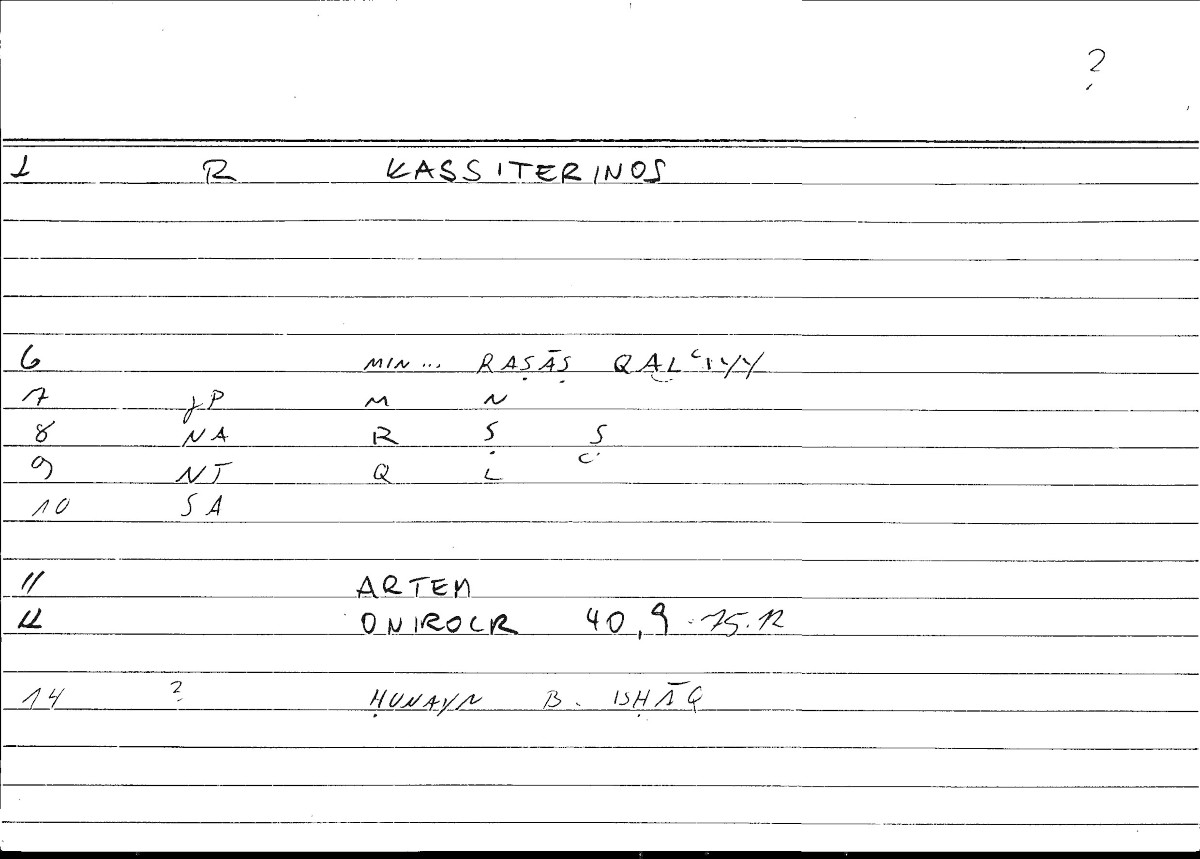 ?
1 R KASSITERINOS
6 MIN... RAṢĀṢ QALʿIYY
7 JP M N
8 NA R Ṣ Ṣ
9 NT Q L ʿ
10 SA
11 ARTEM
12 ONIROCR 40,9 - 75.12
14 ? ḤUNAYN B. ISḤĀQ